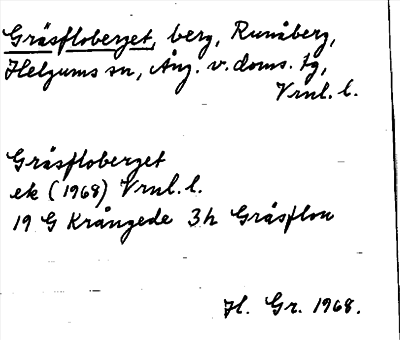 Gräsfloberget, berg, Runåberg,
Helgums sn, Ång. v. doms. tg,
Vrnl. l.
Gräsfloberget
ek (1968) Vrnl. l.
19 G Krångede 3h Gräsflon
H. Gr. 1968.